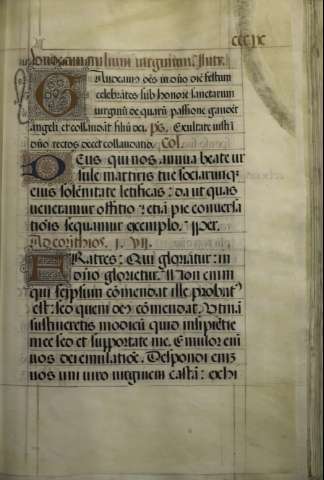 ccc ix
undecim milium virginum. Intr.
Gaudeam᷒ oēs in dño diē festum
celebrātes sub honore sanctarum
virginū de quarū passione gaudēt
angeli et collaudāt filiū dei. ps. Exultate iusti i
dño rectos decet collaudatio. Col.
Deus qui nos annua beate ur
sule martiris tue sociarumq;
eius solēnitate letificas: da ut quas
veneramur officio: etiā pie conversa
tiōis sequamur exemplo. per.
Ad corinthios. i. VII.
FRatres: Qui gloriatur: in
dño glorietur. Non enim
qui seipsum cōmendat ille probat᷒
est: sed quem de᷒ cōmendat. Utinā
sustineretis modicū quid insipiētie
mee sed et supportate me. Emulor eni
vos dei emulatiōe. Despondi eniz
vos uni viro virginem castā: exhi